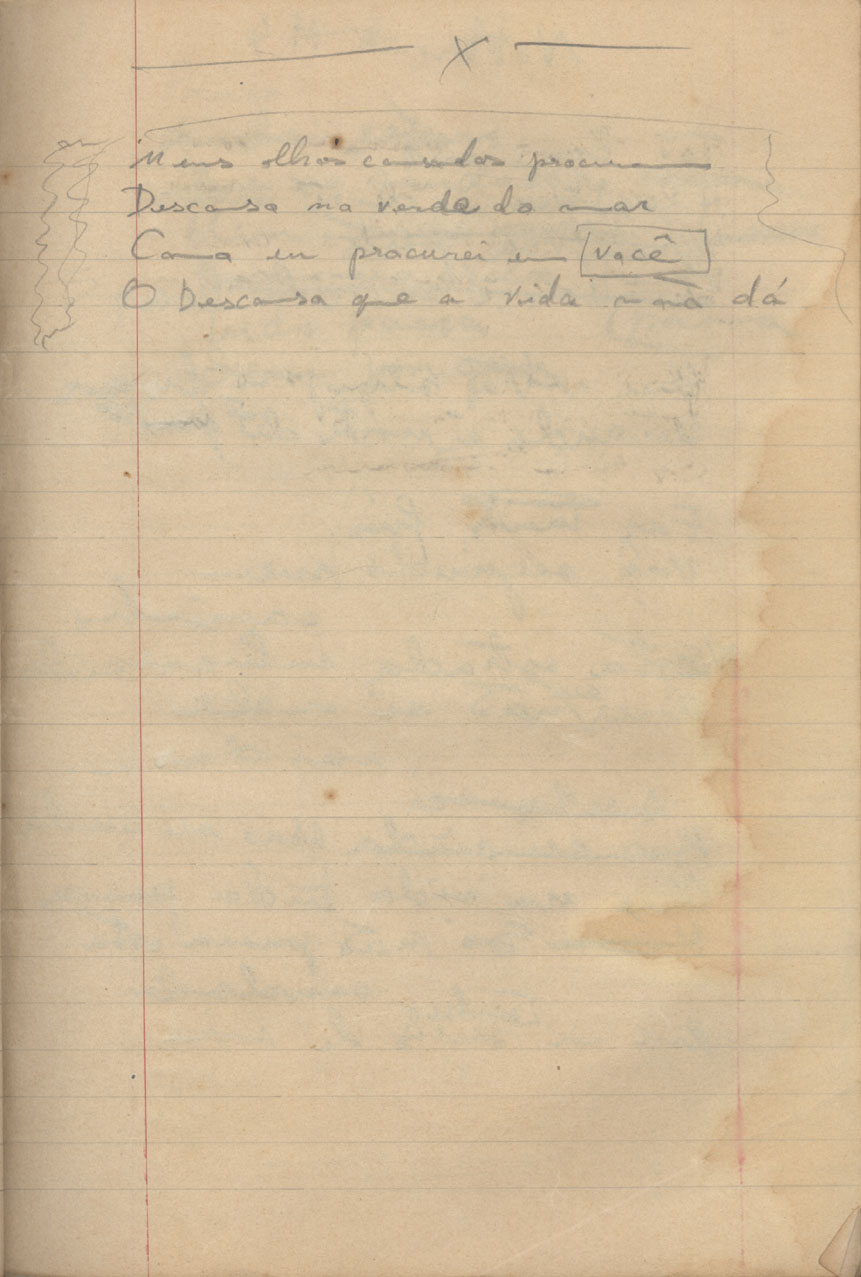 X
Meus olhos cansados procuram
Descanso no verde do mar
Como eu procurei em você
O Descanso que a vida não dá